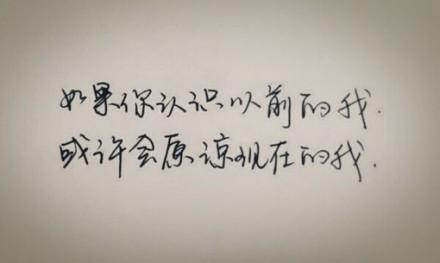 如果你认识以前的我.
或许会原谅现在的我.